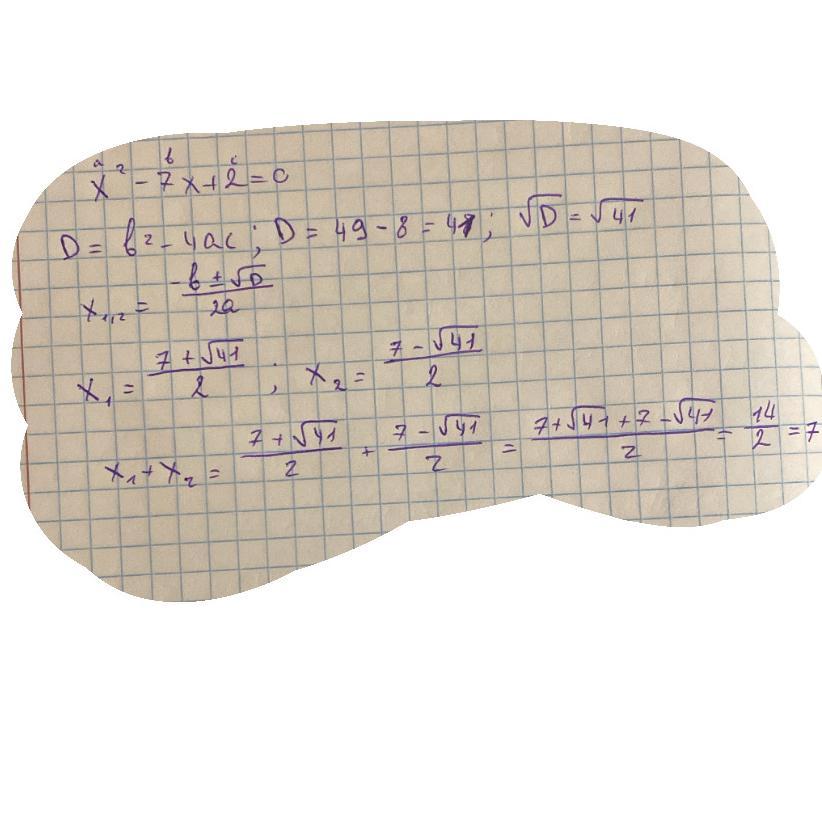 a b c
x² - 7x + 2 = 0
D = b² - 4ac ; D = 49 - 8 = 41 ; √D = √41
x₁,₂ = (-b ± √D)/2a
x₁ = (7 + √41)/2 ; x₂ = (7 - √41)/2
x₁ + x₂ = (7 + √41)/2 + (7 - √41)/2 = (7 + √41 + 7 - √41)/2 = 14/2 = 7